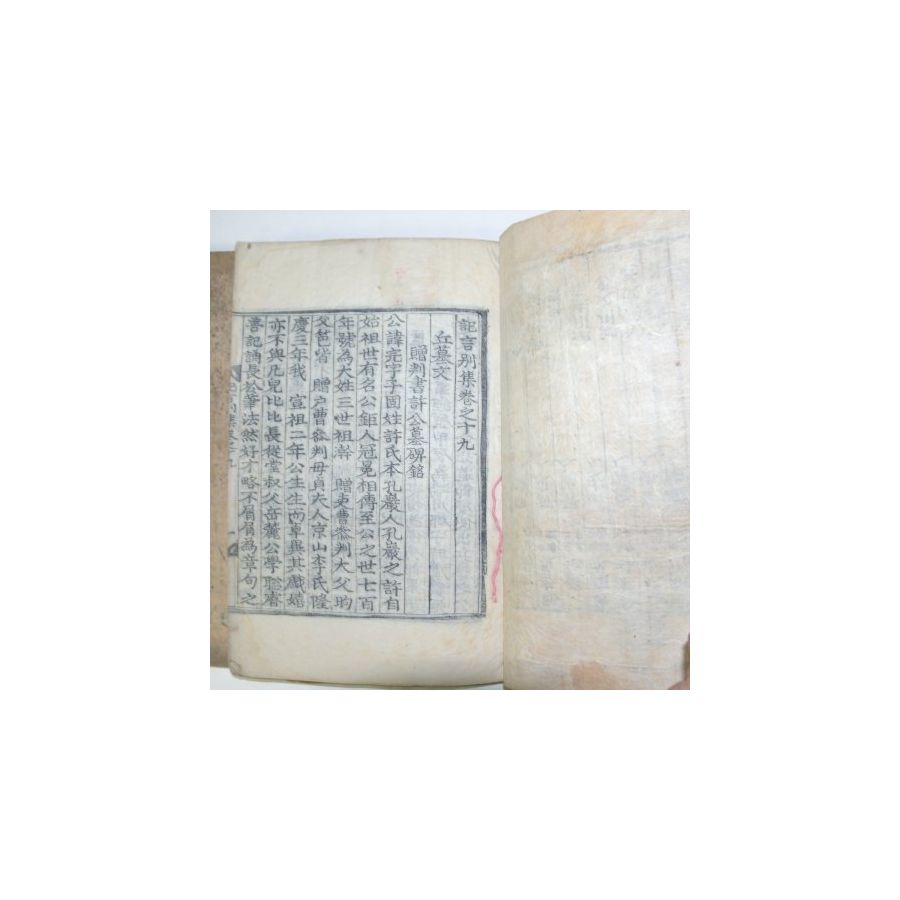 記言別集卷之十九
丘墓文
贈判書許公墓碑銘
公諱完字子固姓許氏本孔巖人孔巖之許自
始祖世有名公鉅人冠冕相傳至公之世七百
年號為大姓三世祖澣 贈吏曹參判大父昀
父窑皆 贈戶曹參判母貞夫人京山李氏隆
慶三年我 宣祖二年公生生而卓異其戲嬉
亦不與凡兒比比長從堂叔父岳麓公學聰睿
善記誦長於筆法然好才略不屑屑為章句之